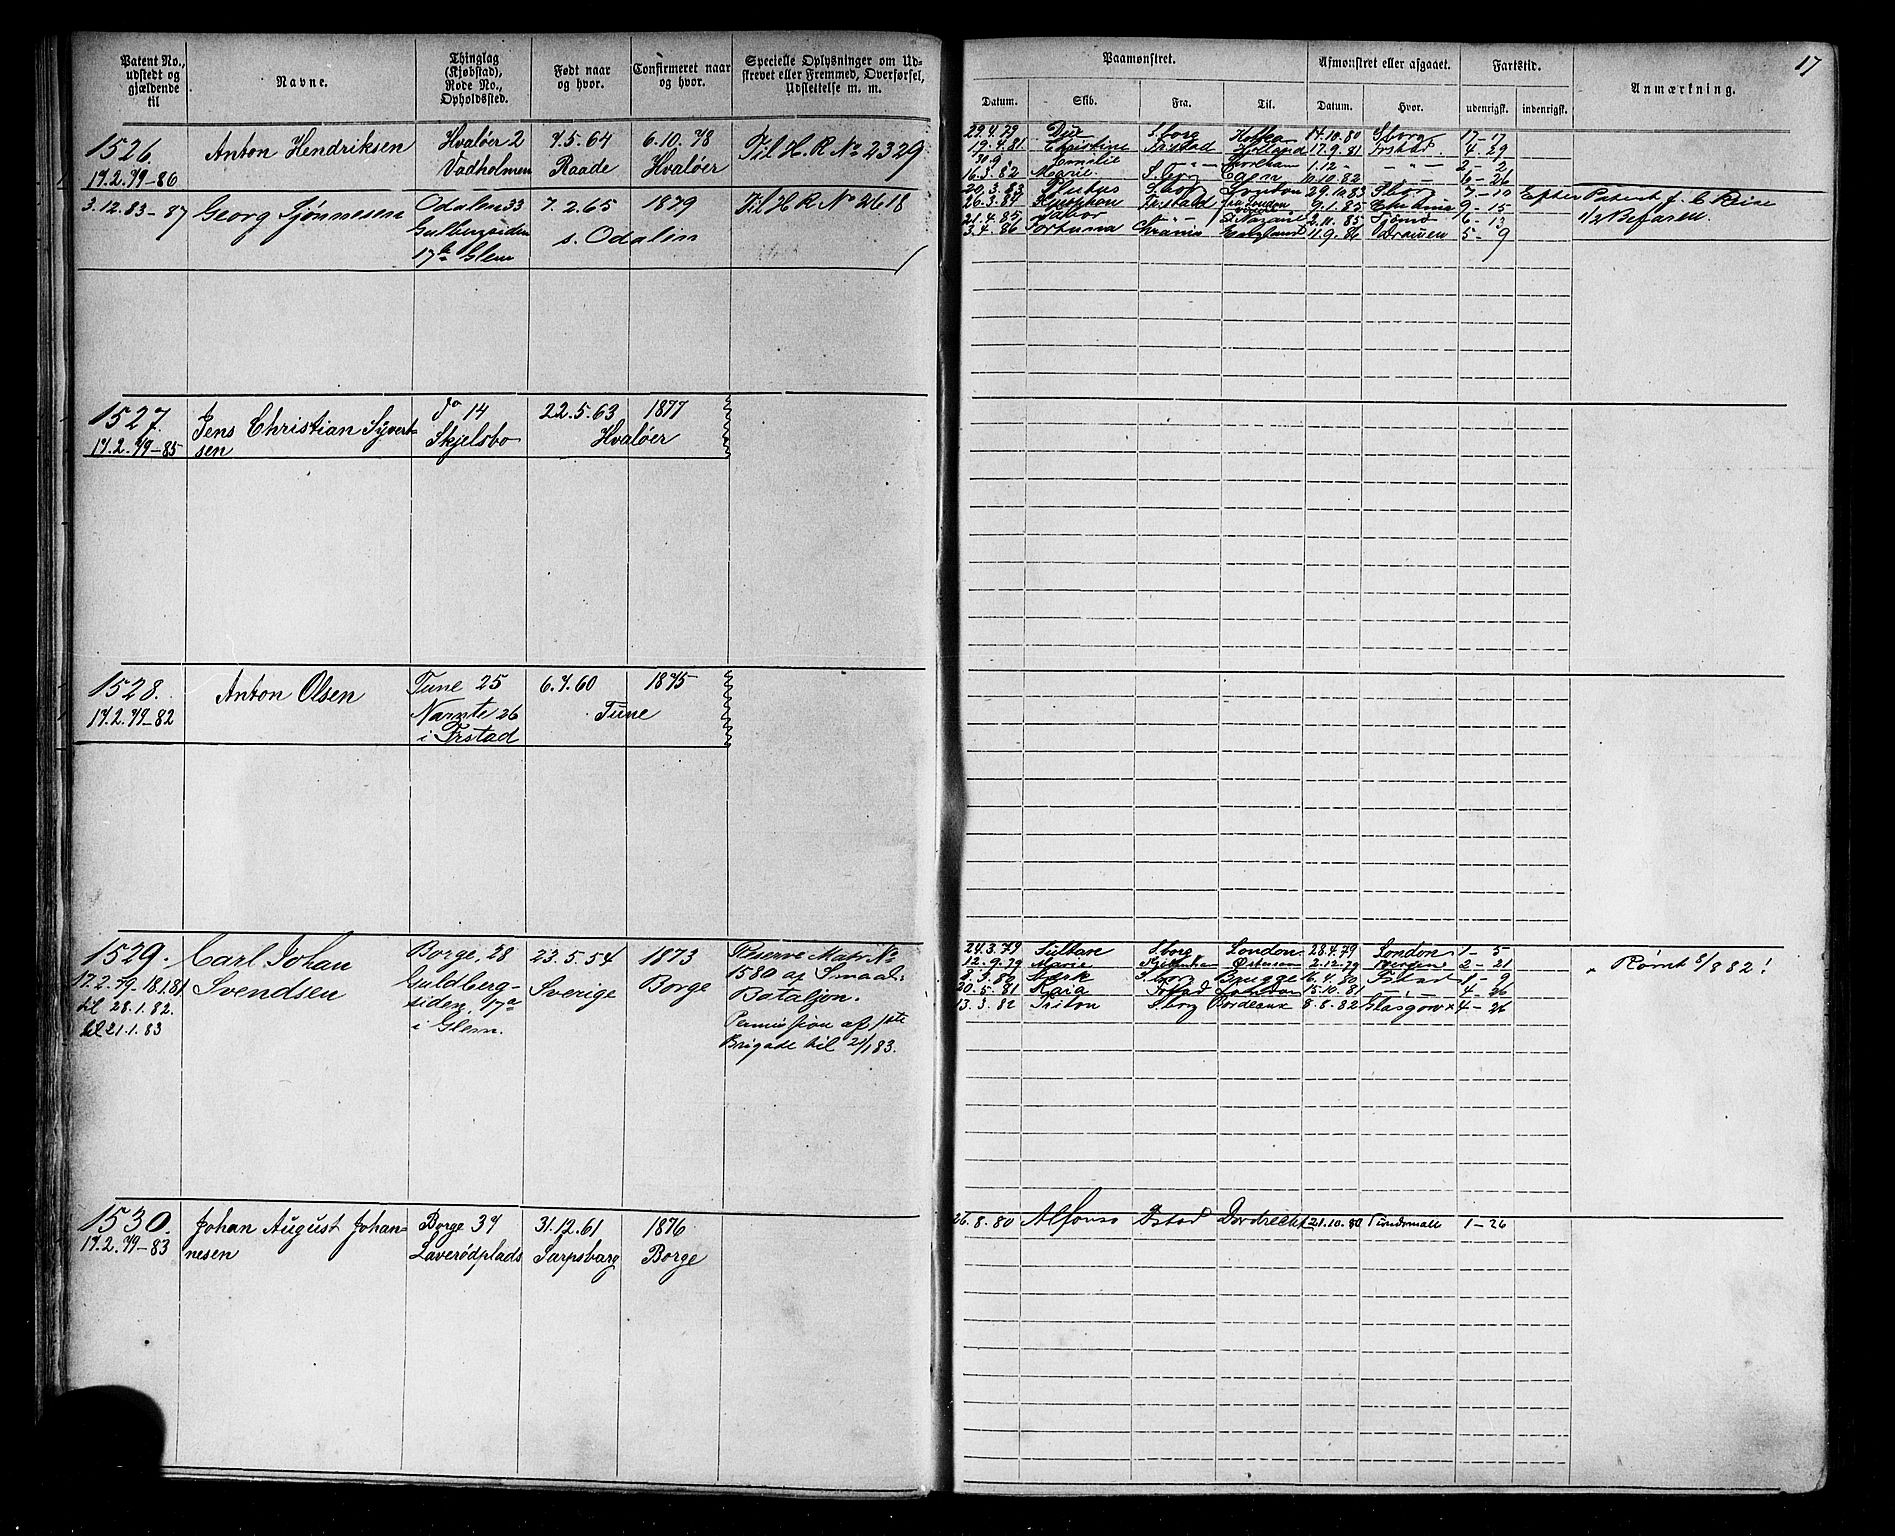 Patent No., udstedt og gjældende til
Navne.
Thinglag (Kjøbstad), Rode No., Opholdssted.
Født naar og hvor.
Confirmeret naar og hvor.
Specielle Oplysninger om Udskrevet eller Fremmed, Overførsel, Udslettelse m. m.
1526. Anton Hendriksen Hvaløer 2 7.5.64 6.10.78 Til H. R No 2329
17.2.79-86 Vadholmen Raade Hvaløer
3.12.83-87 Georg Tjønnesen Odalen 33 7.2.65 1879 Til H R No 2618
Gulbergsiden s. Odalin
17 a Glem
1527. Jens Christian Syvert- Do 14 22.5.63 1877
17.2.79-85 sen Skjelsbo Hvaløer
1528. Anton Olsen Tune 25 6.7.60 1875
17.2.79-82 Tune
i Frstad
1529. Carl Johan Borge, 28 23.5.54 1873 Reserve Matr. No
17.2.79. 18.1.81 Svendsen Guldberg- Sverige Borge 1580 af Smaal.
til 28.1.82. siden, 17 a Bataljon.
til 21.1.83 i Glem. Permission af 1ste
Brigade til 21/1 83.
1530. Johan August Johan- Borge 37 31.12.61 1876
17.2.79-83 nesen Laverødplads Sarpsborg Borge
17
Paamønstret.
Afmønstret eller afgaaet.
Fartstid.
Anmærkning.
Datum. Skib. Fra. Til. Datum. Hvor. udenrigsk. indenrigsk.
29.4.79 Sborg 14.10.80 Sborg 17-17
19.4.81 Christine Frstad Holland 17.9.81 Frstad 4-29
30.9 Emilie 1.12 2-2
16.3.82 Marie Sborg Caen 10.10.82 6-26
20.3.83 Sborg London 29.10.83 Sborg 7-10 Efter Patent f. C Reise
26.3.84 9.1.85 9-15 1/2 Befaren.
21.4.85 Tabor St Nazaire 2.11.85 6-12
3.4.86 Fortuna England 11.9.86 5-9
24.3.79 Sultan Sborg London 28.4.79 London 1-5
12.9.79 Marie 2.12.79 2-21 Rømt 8/8 82!
Sborg Brügge Frstad 1-9
20.5.81 Kaia Frstad London 15.10.81 4-26
13.3.82 Triton Sborg Bordeaux 8.8.82 Glasgow 4-26
26.8.80 Alfonso Frstad Dordrecht 21.10.80 1-26